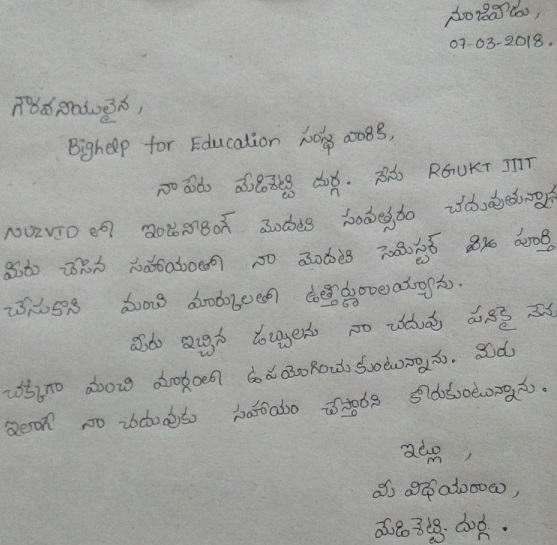 నూజివీడు,
07-03-2018.
గౌరవనీయులైన,
Bighelp for Education సంస్థ వారికి,
నా పేరు మేడిశెట్టి దుర్గ. నేను RGUKT IIIT
NUZVID లో ఇంజనీరింగ్ మొదటి సంవత్సరం చదువుతున్నాను
మీరు చేసిన సహాయంతో నా మొదటి సెమిస్టర్ విజ పూర్తి
చేసుకొని మంచి మార్కులతో ఉత్తీర్ణురాలయ్యాను.
మీరు ఇచ్చిన డబ్బులను నా చదువు పనికై నేను
చక్కగా మంచి మార్గంలో ఉపయోగించుకుంటున్నాను. మీరు
ఇలాగే నా చదువుకు సహాయం చేస్తారని కోరుకుంటున్నాను.
ఇట్లు ,
మీ విధేయురాలు,
మేడిశెట్టి. దుర్గ.